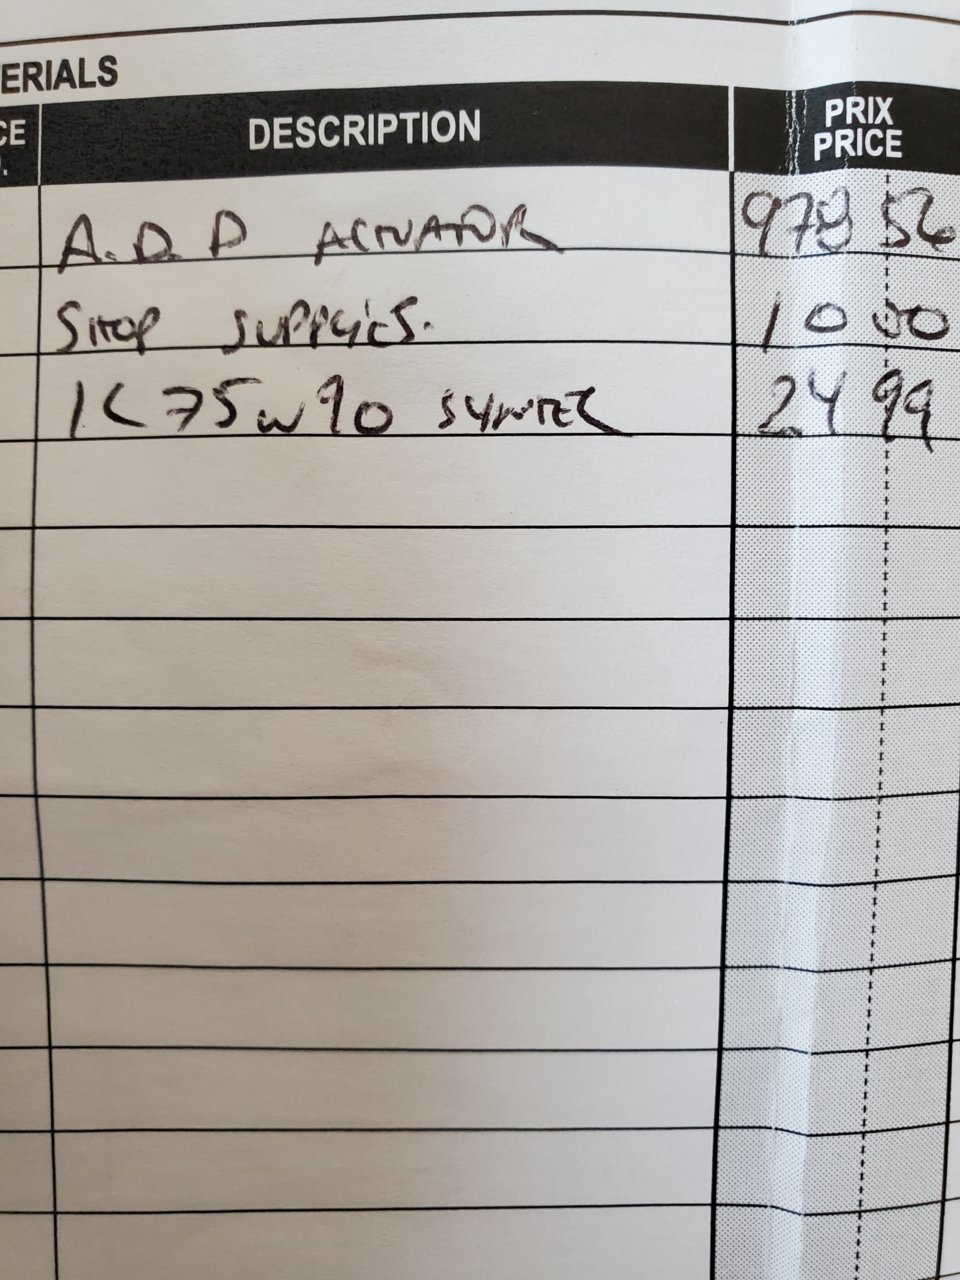 ERIALS
CE DESCRIPTION PRIX
. PRICE
A.D.D ACTUATOR 978 56
SHOP SUPPLIES. 10 00
1L 75W90 SYNTEC 24 99